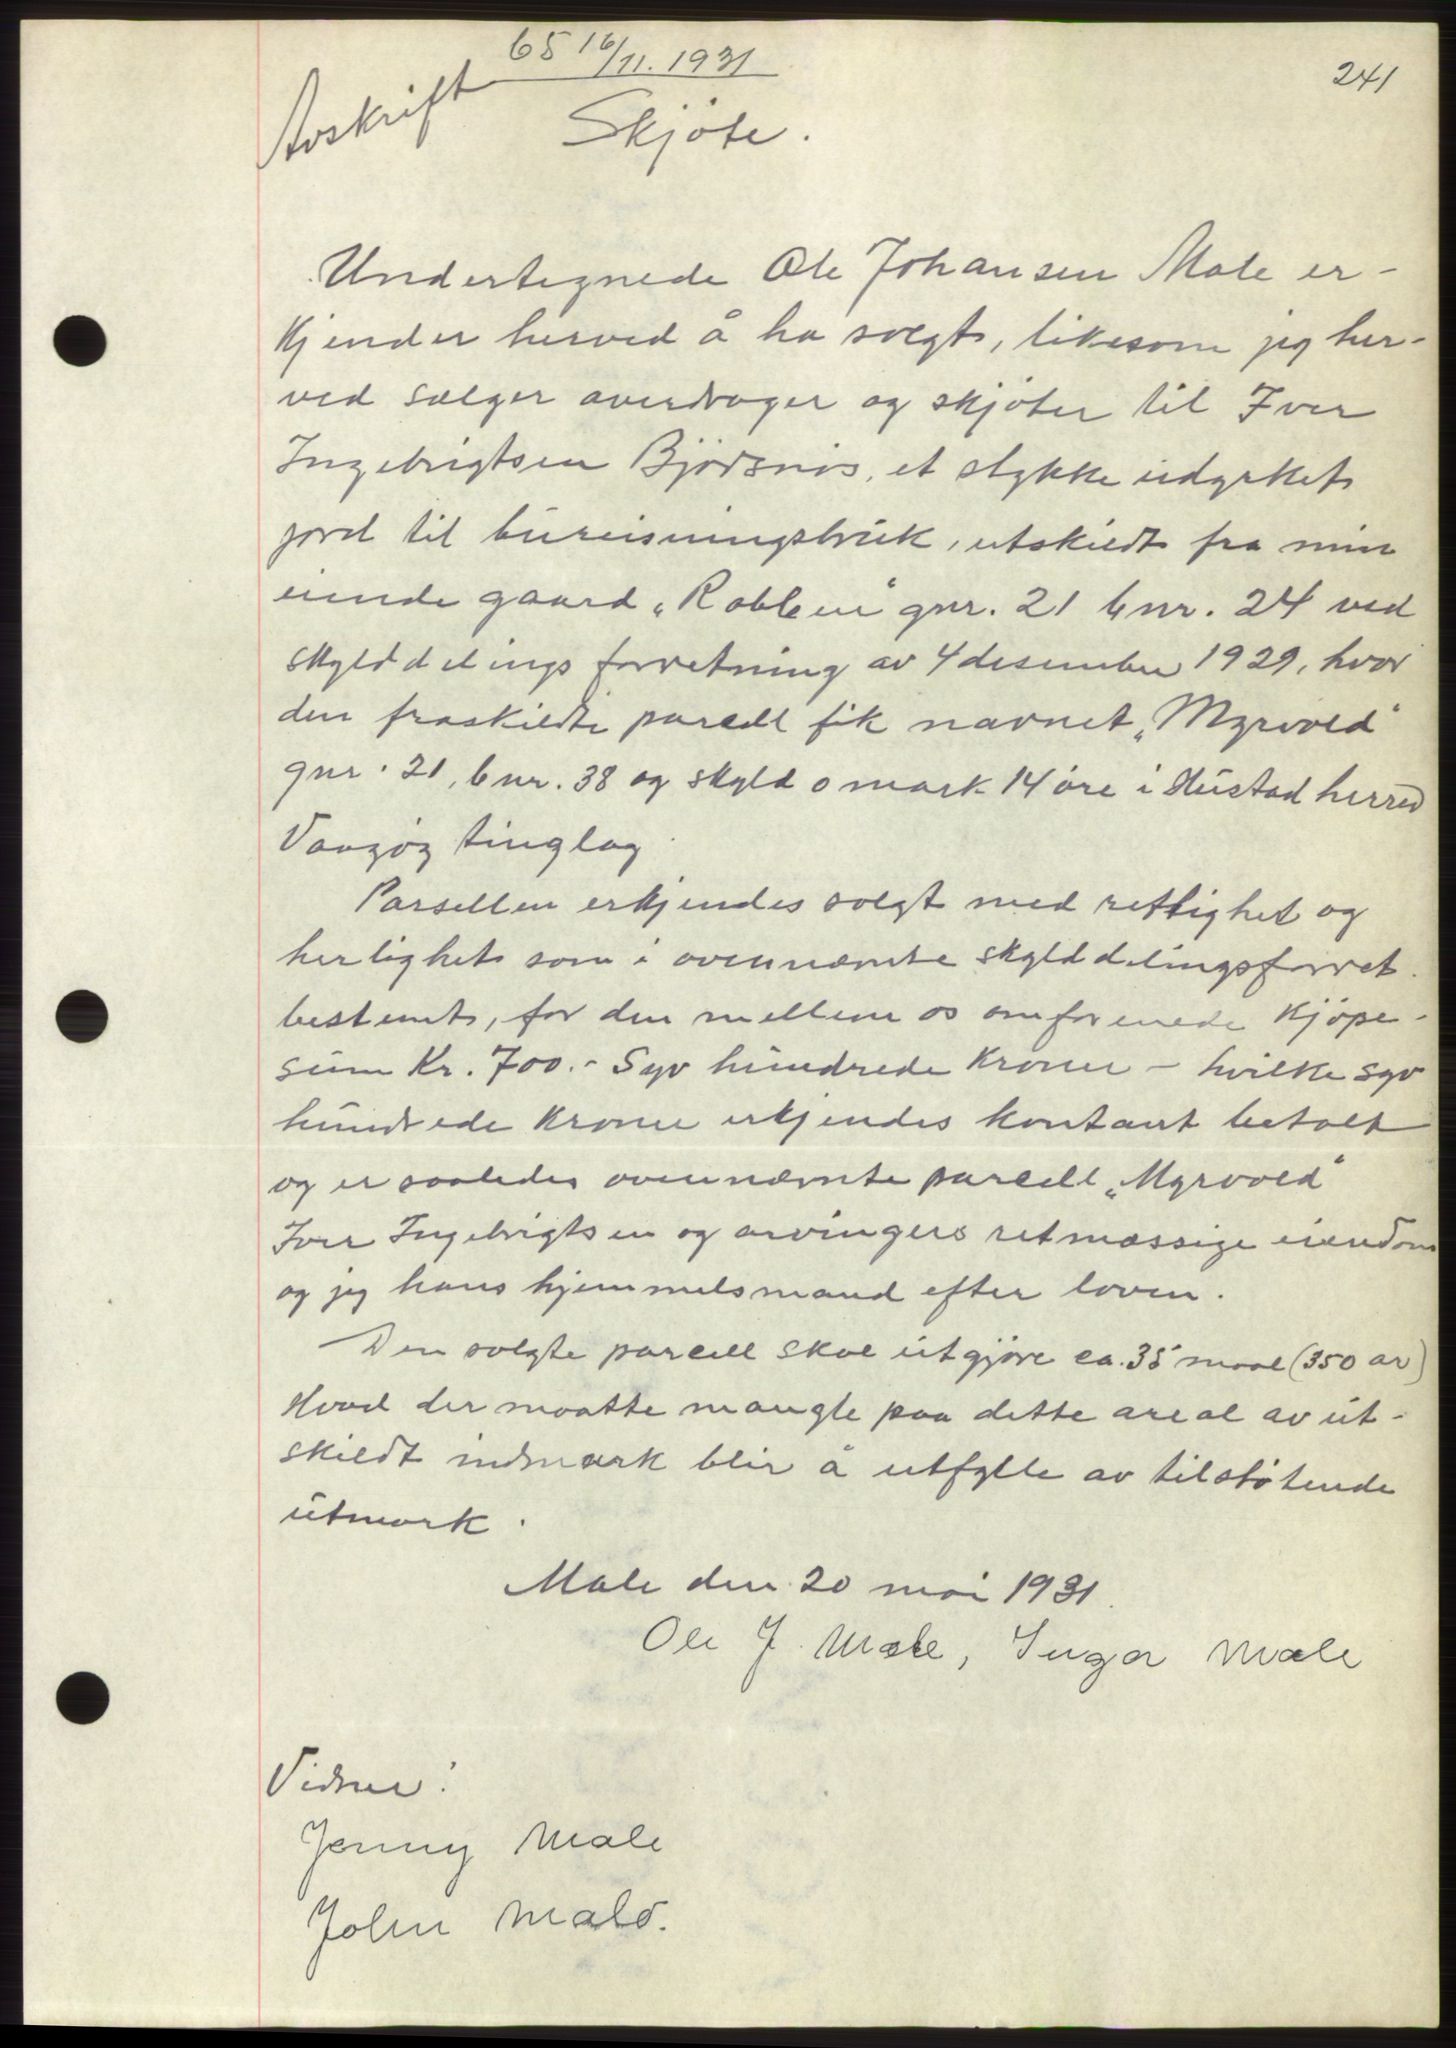 65 16/11. 1931
241
Avskrift
Skjöte.
Undertegnede Ole Johansen Male er-
kjender herved å ha solgt, likesom jeg her-
ved sælger overdrager og skjöter til Iver
Ingebrigtsen Bjørsnös, et stykke udyrket
jord til bureisningsbruk, utskildt fra min
eiende gaard „Robben" gnr. 21 bnr. 24 ved
skylddelingsforretning av 4 desember 1929, hvor
den fraskildte parcell fik navnet „Myrvold"
gnr. 21, bnr. 38 og skyld 0 mark 14 öre i Hustad herred
Vaagöy tinglag
Parsellen erkjendes solgt med rettighet og
herlighet som i ovennævnte skylddelingsforret.
bestemt, for den mellem os omforenede kjöpe-
sum Kr. 700.- Syv hundrede kroner - hvilke syv
hundrede kroner erkjendes kontant betalt
og er saaledes ovennævnte parcell „Myrvold"
Iver Ingebrigtsen og arvingers retmæssige eiendom
og jeg hans hjemmelsmand efter loven.
Den solgte parcell skal utgjöre ca. 35 maal (350 ar)
Hvad der maatte mangle paa dette areal av ut-
skildt indmark blir å utfylle av tilstötende
utmark.
Male den 20 mai 1931.
Ole J. Male, Inga Male
Vidner:
Jenny Male
John Malo.